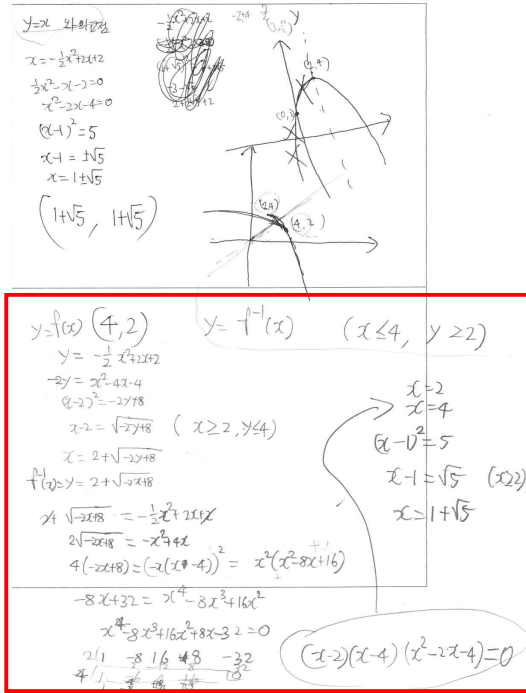 y=x 와의교점
x = -1/2x²+2x+2
1/2x²-x-2=0
x²-2x-4=0
(x-1)²=5
x-1 = ±√5
x=1±√5
(1+√5, 1+√5)
y
(2,4)
(2,4)
(4,2)
y=f(x) (4,2) y=f⁻¹(x) (x≤4, y≥2)
y = -1/2x²+2x+2
-2y = x²-4x-4
(x-2)² = -2y+8
x-2 = √-2y+8 (x≥2, y≤4)
x = 2+√-2y+8
f⁻¹(x)=y = 2+√-2x+8
2+√-2x+8 = -1/2x²+2x+2
2√-2x+8 = -x²+4x
4(-2x+8) = (-x(x-4))² = x²(x²-8x+16)
-8x+32 = x⁴-8x³+16x²
x⁴-8x³+16x²+8x-32=0
2 1 -8 16 +8 -32
4
x=2
x=4
(x-1)²=5
x-1=√5 (x≥2)
x=1+√5
(x-2)(x-4)(x²-2x-4)=0